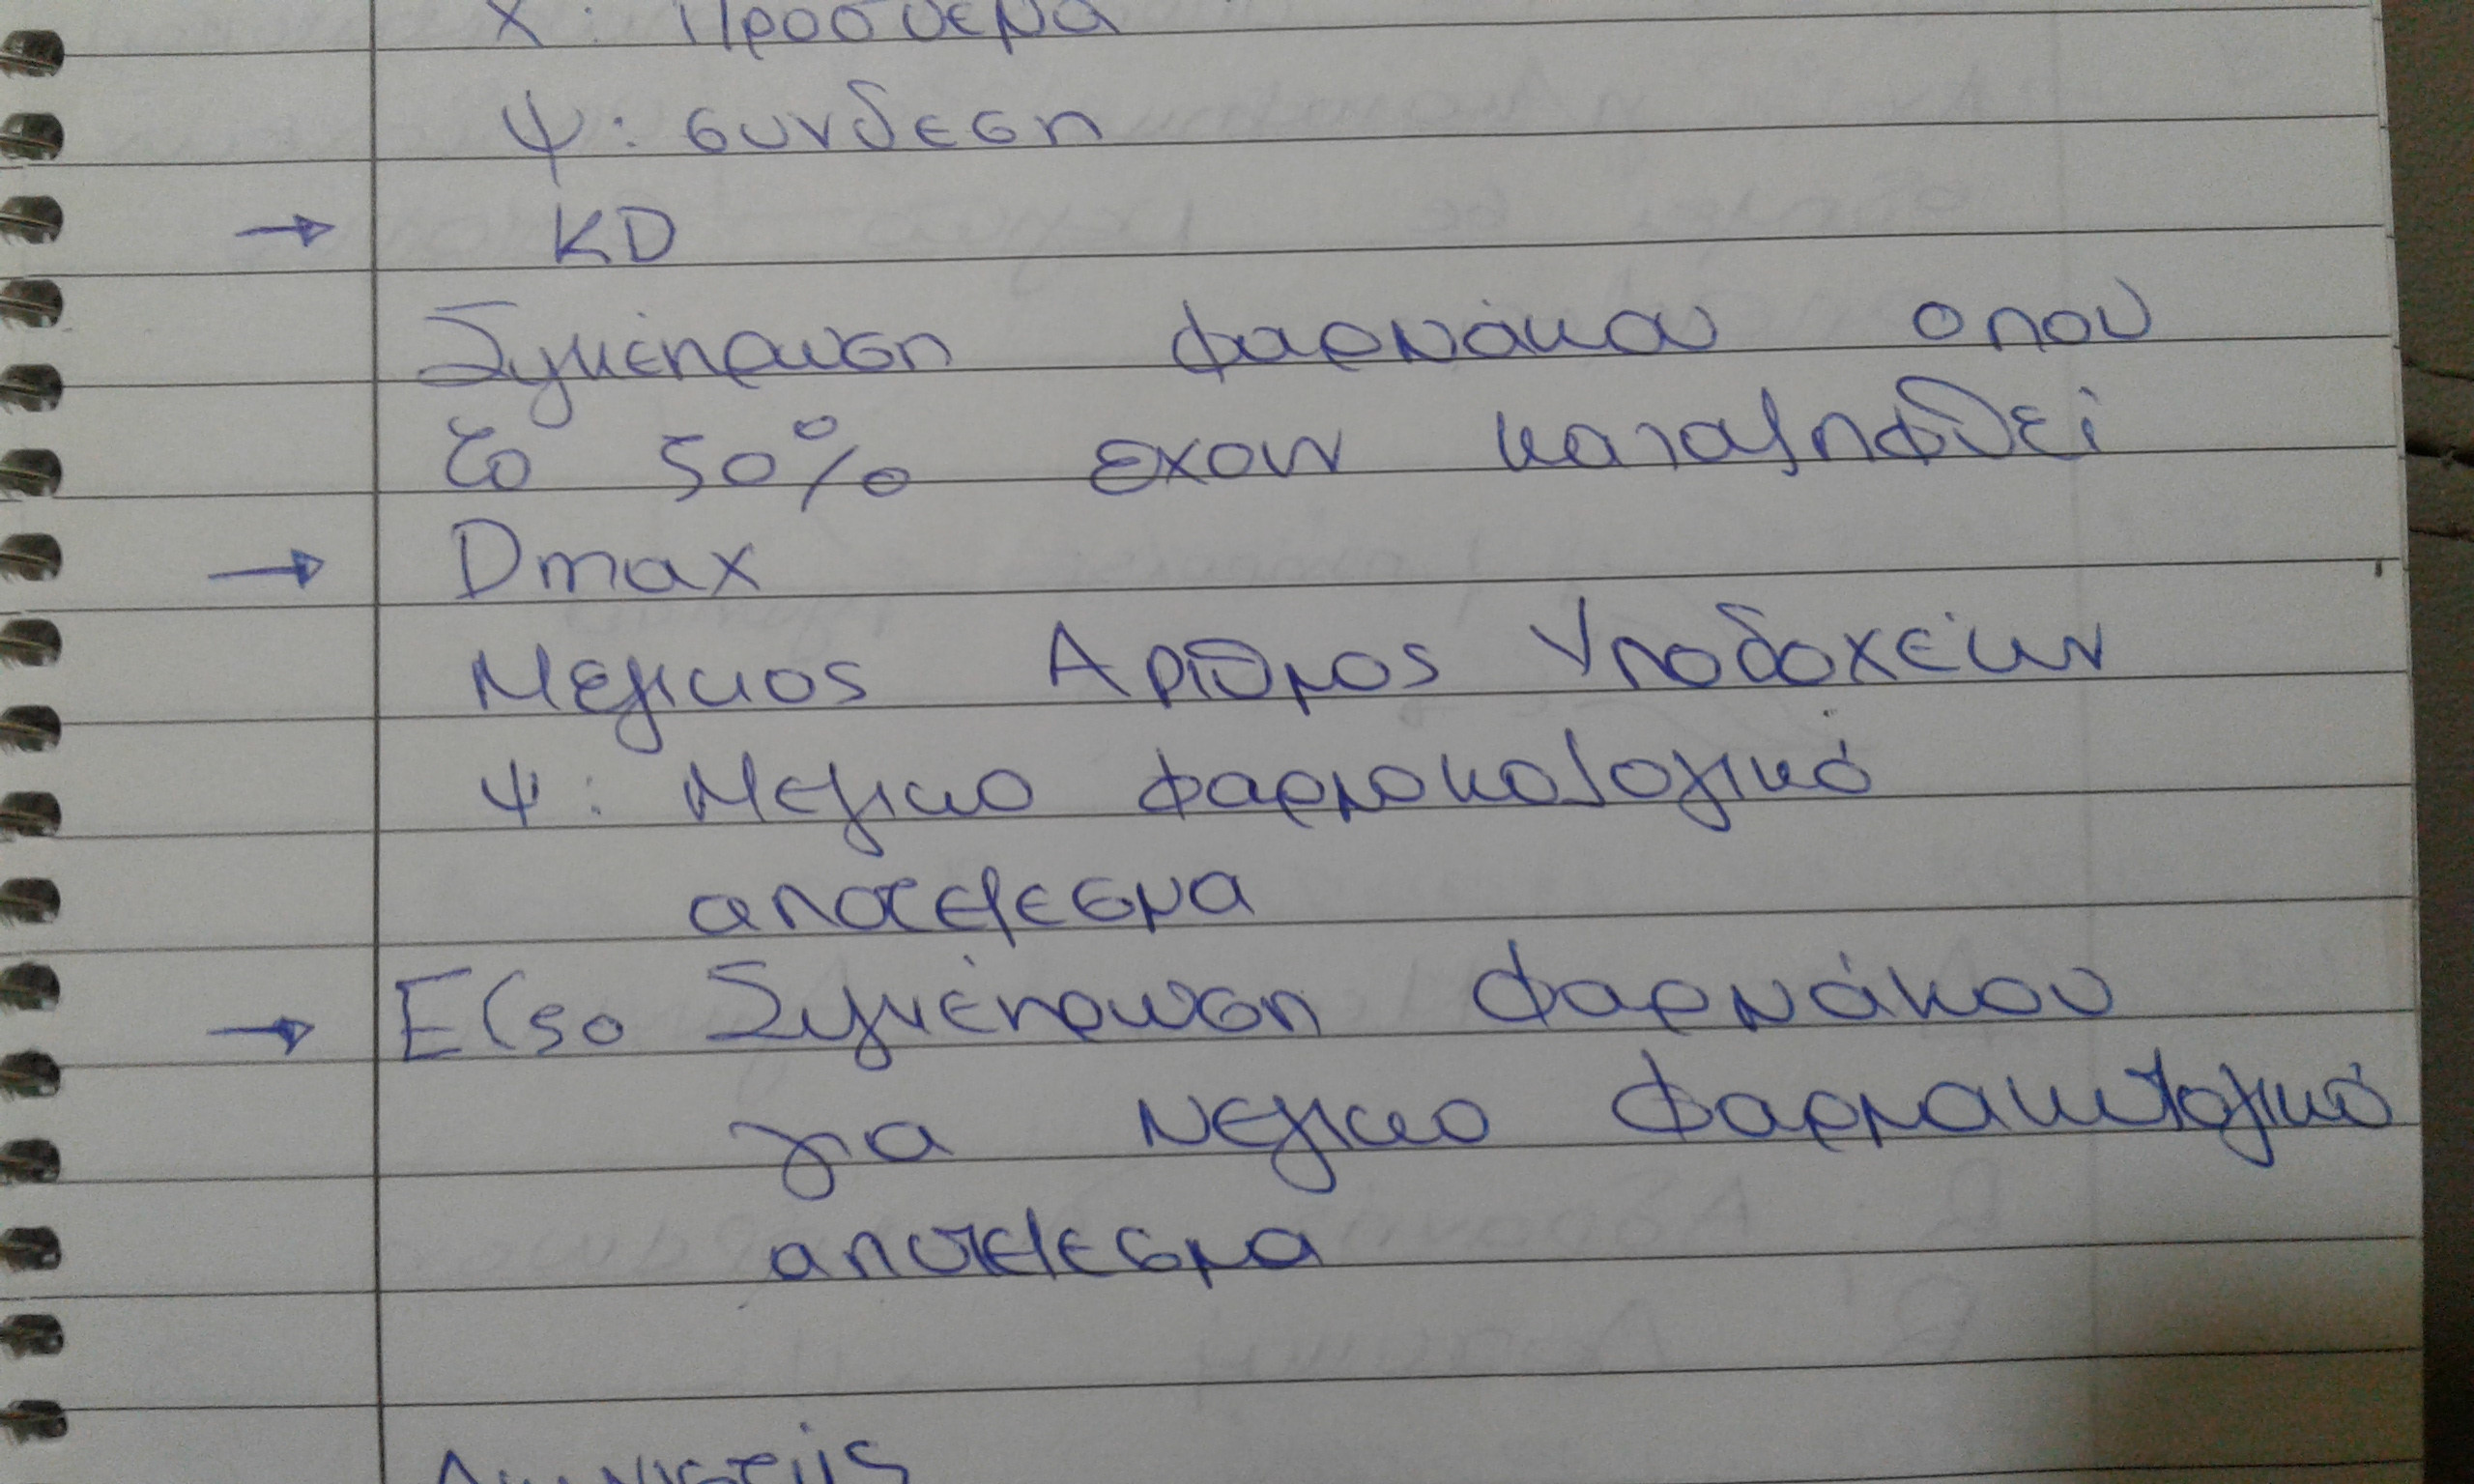 Χ: Πρόσθεμα
Ψ: συνδεση
→ KD
Συγκέντρωση φαρμάκου οπου
το 50% εχουν καταληφθεί
→ Dmax
Μεγιστος Αριθμος Υποδοχέων
Ψ: Μεγιστο φαρμακολογικό
αποτελεσμα
→ EC50 Συγκέντρωση Φαρμάκου
για μεγιστο Φαρμακολογικό
αποτελεσμα